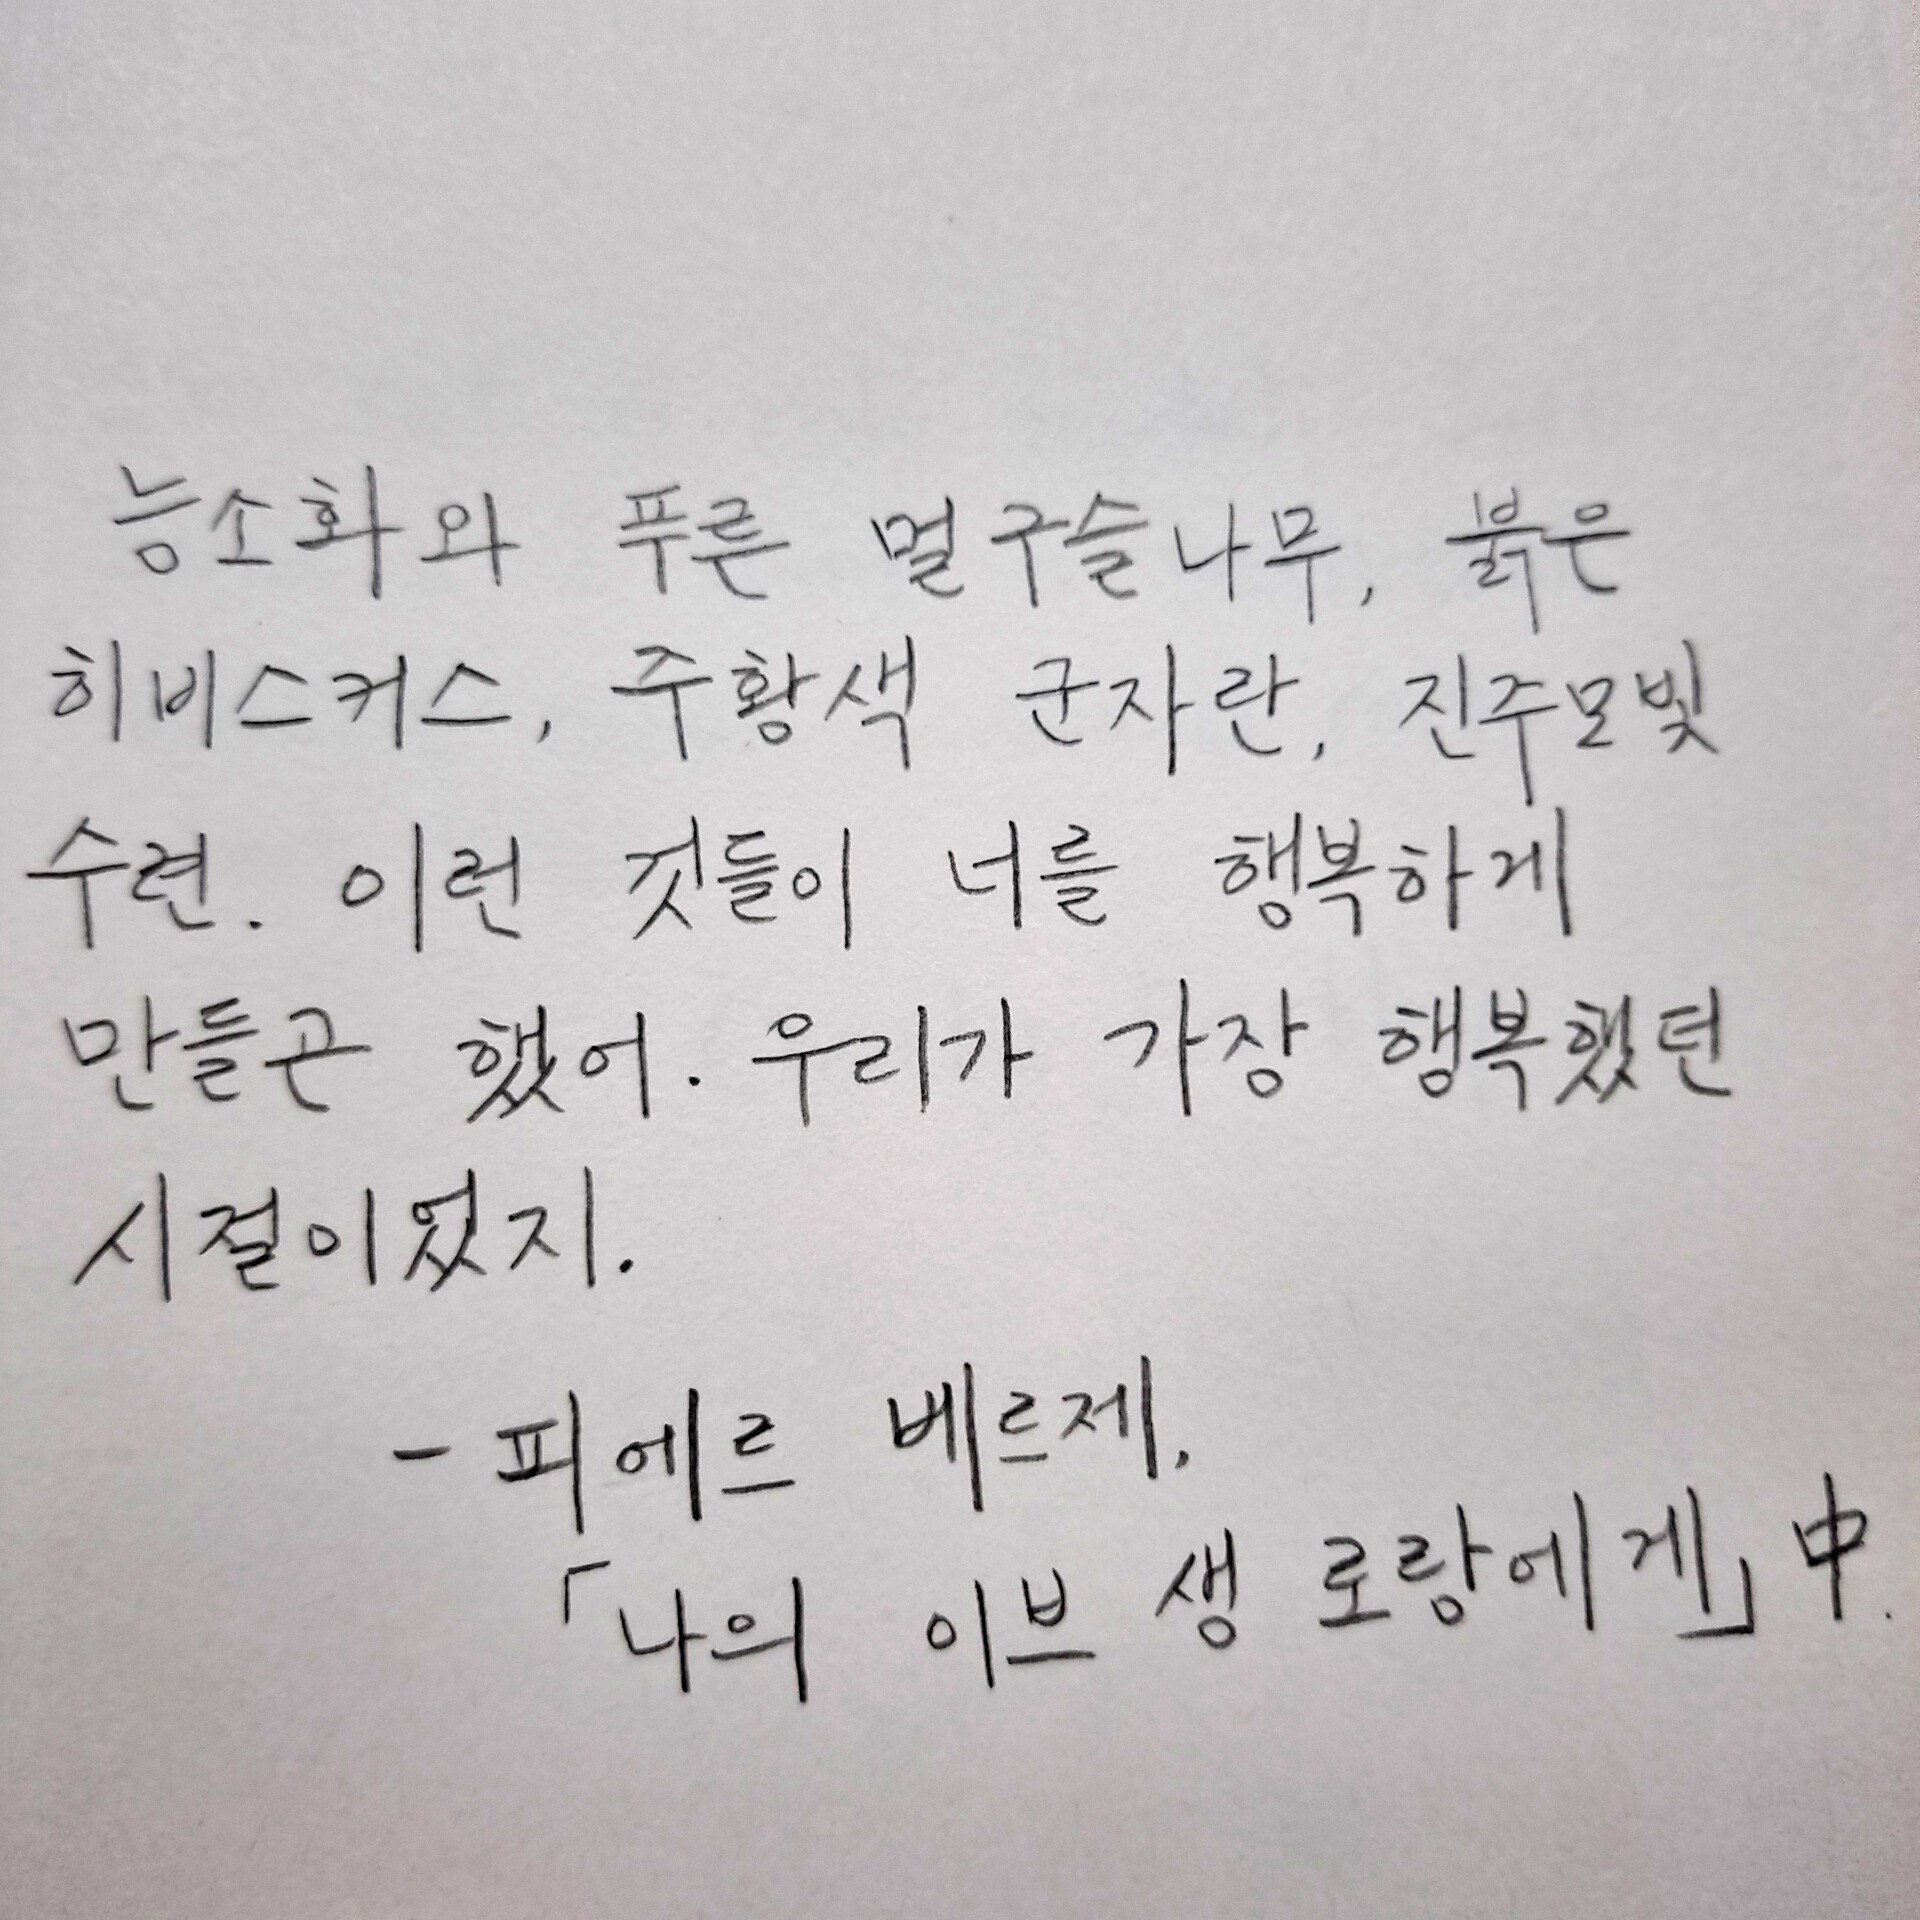 능소화와 푸른 멀구슬나무, 붉은
히비스커스, 주황색 군자란, 진주모빛
수련. 이런 것들이 너를 행복하게
만들곤 했어. 우리가 가장 행복했던
시절이었지.
- 피에르 베르제,
「나의 이브 생 로랑에게」 中.